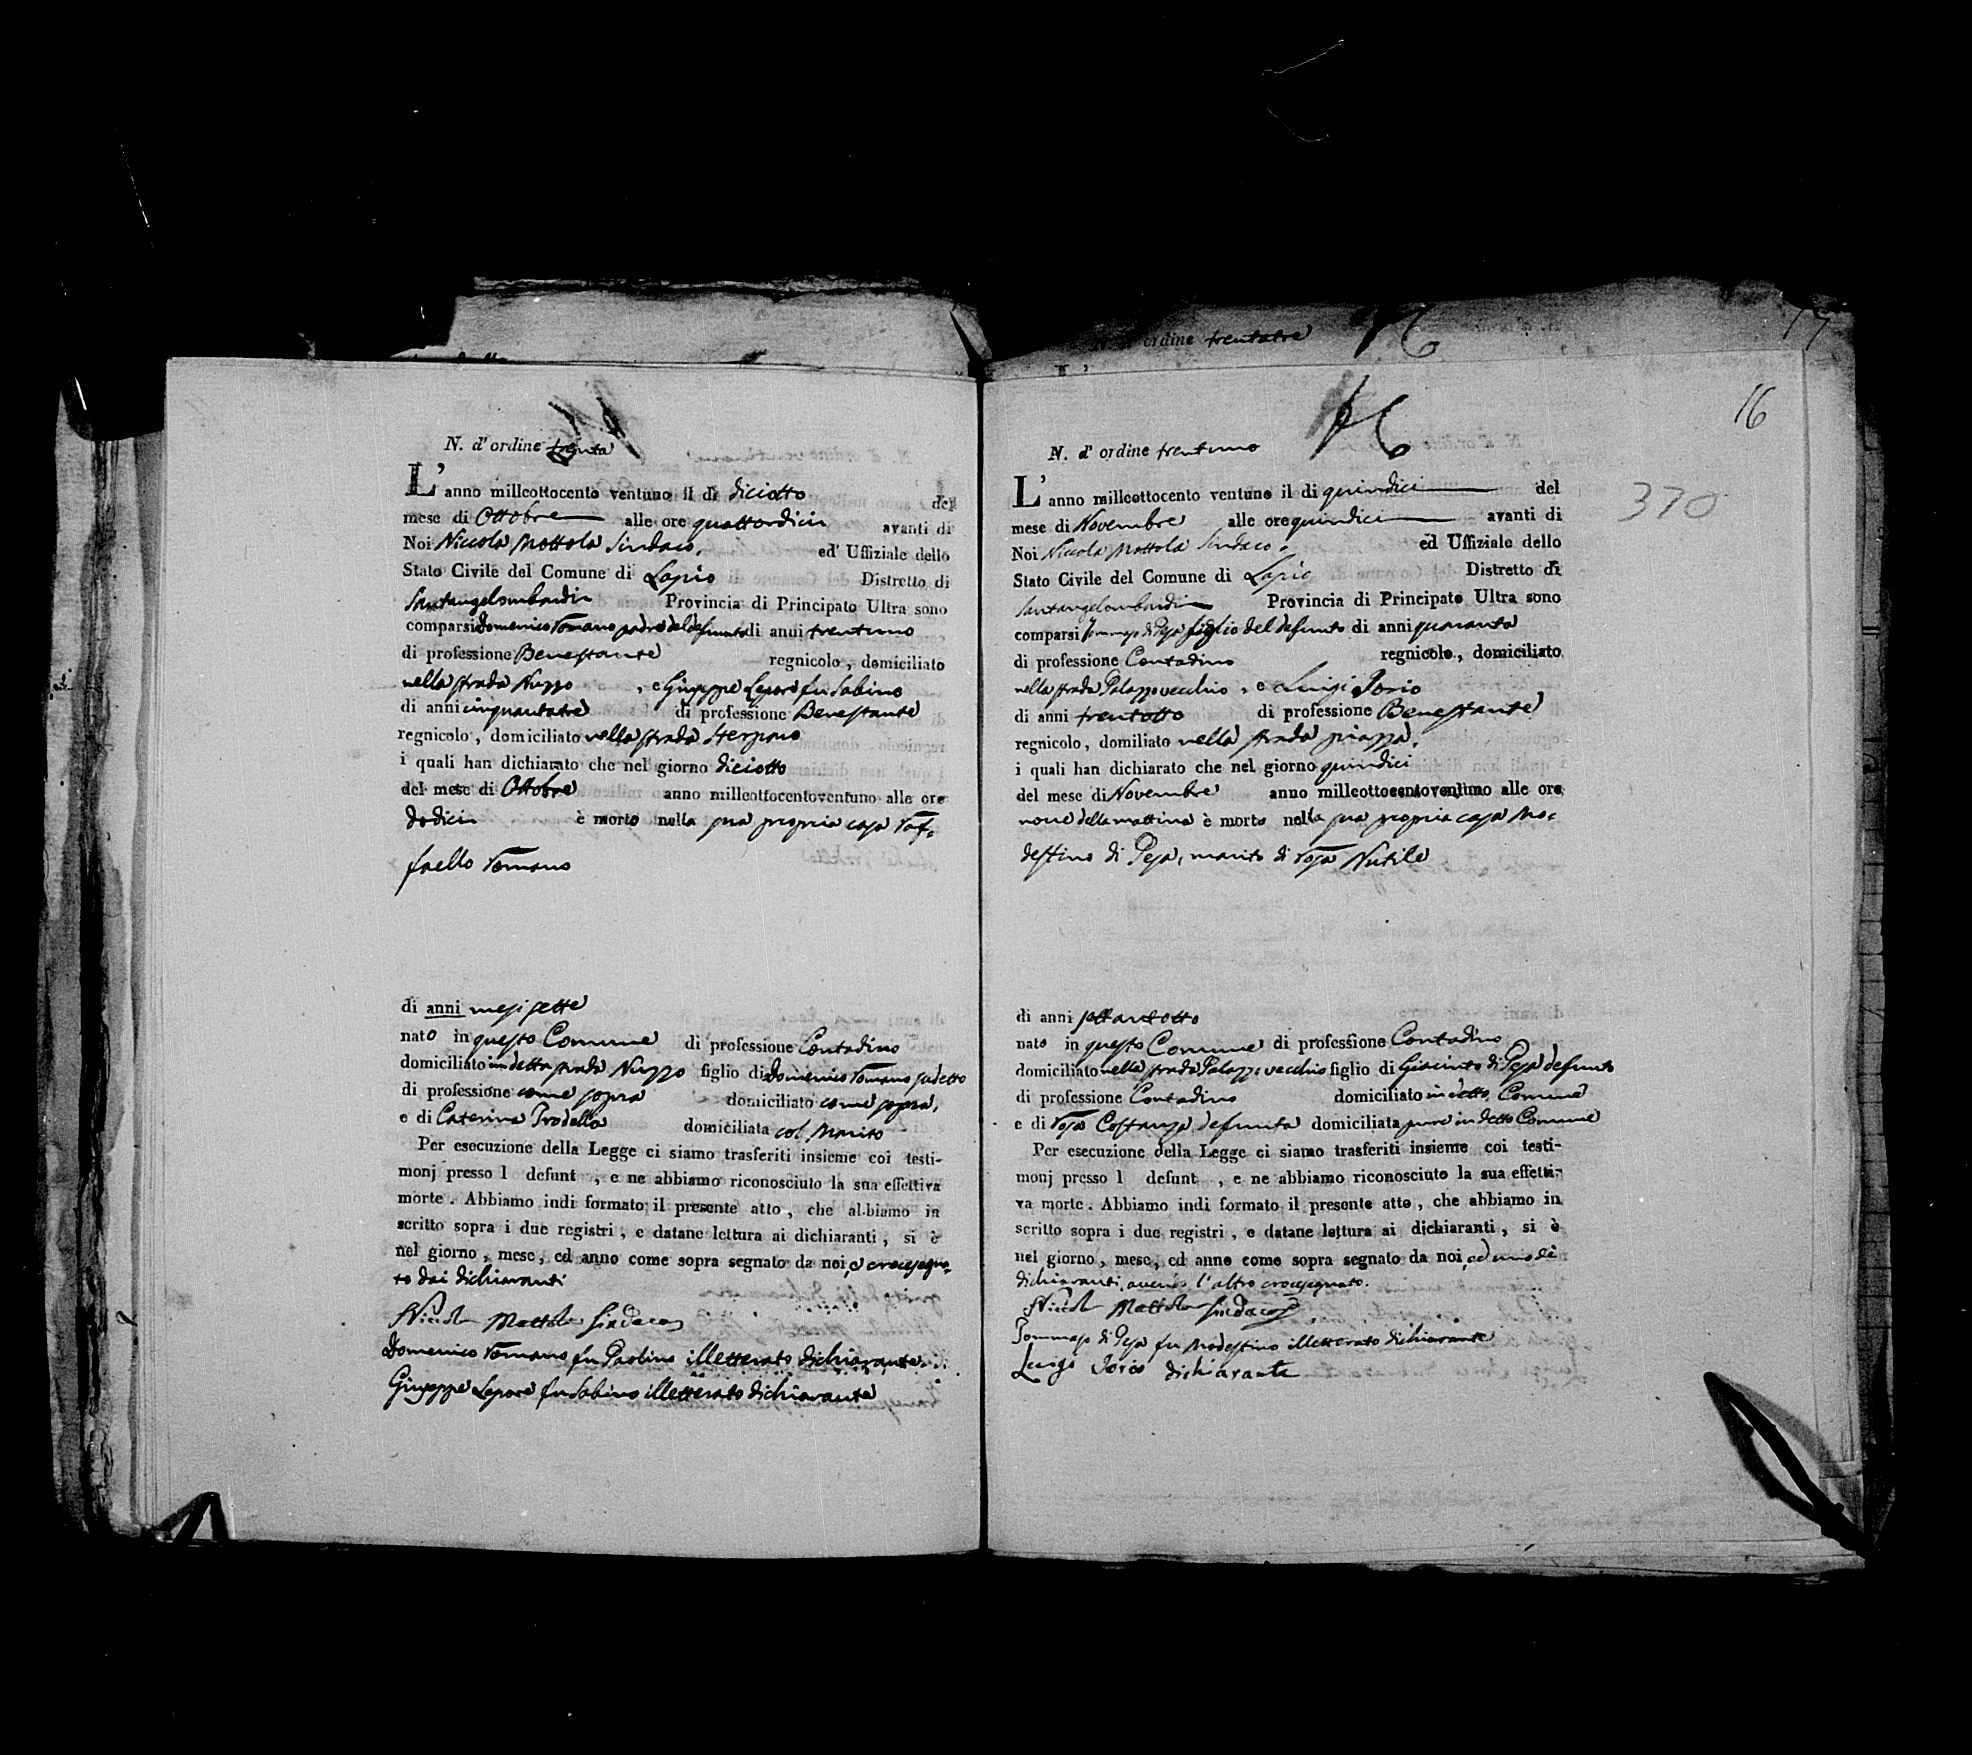 N. d' ordine trenta
L' anno milleottocento ventuno il di diciotto del
mese di Ottobre alle ore quattordici avanti di
Noi Niccola Mottola Sindaco, ed Uffiziale dello
Stato Civile del Comune di Lapio Distretto di
Santangelombardi Provincia di Principato Ultra sono
comparsi Domenico Romano padre del defunto di anni trentuno
di professione Benestante regnicolo, domiciliato
nella strada Nuzzo, e Giuseppe Lepore fu Sabino
di anni cinquantatre di professione Benestante
regnicolo, domiciliato nella strada Sterparo
i quali han dichiarato che nel giorno diciotto
del mese di Ottobre anno milleottocentoventuno alle ore
dodici è morto nella sua propria casa Raf=
faello Romano
di anni mesi sette
nato in questo Comune di professione Contadino
domiciliato in detta strada Nuzzo figlio di Domenico Romano sudetto
di professione come sopra domiciliato come sopra,
e di Caterina domiciliata col Marito
Per esecuzione della Legge ci siamo trasferiti insieme coi testi-
monj presso l defunt , e ne abbiamo riconosciuto la sua effettiva
morte. Abbiamo indi formato il presente atto, che abbiamo in
scritto sopra i due registri, e datane lettura ai dichiaranti, si è
nel giorno, mese, ed anno come sopra segnato da noi, e crocesegna-
to dai dichiaranti
Nicola Mottola Sindaco
Domenico Romano fu Paolino illetterato dichiarante
Giuseppe Lepore fu Sabino illetterato dichiarante
ordine trentatre
16
N. d' ordine trentuno
370
L' anno milleottocento ventuno il di quindici del
mese di Novembre alle ore quindici avanti di
Noi Niccola Mottola Sindaco, ed Uffiziale dello
Stato Civile del Comune di Lapio Distretto di
Santangelombardi Provincia di Principato Ultra sono
comparsi Tommaso di Pesa figlio del defunto di anni quaranta
di professione Contadino regnicolo, domiciliato
nella strada Palazzo vecchio, e Luigi Iorio
di anni trentotto di professione Benestante
regnicolo, domiliato nella strada piazza,
i quali han dichiarato che nel giorno quindici
del mese di Novembre anno milleottocentoventuno alle ore
nove della mattina è morto nella sua propria casa Mo=
destino di Pesa, marito di Rosa Nutile
di anni settantotto
nato in questo Comune di professione Contadino
domiciliato nella strada Palazzo vecchio figlio di Giacinto di Pesa defunto
di professione Contadino domiciliato in detto Comune
e di Rosa Costanza defunta domiciliata pure in detto Comune
Per esecuzione della Legge ci siamo trasferiti insieme coi testi-
monj presso l defunt , e ne abbiamo riconosciuto la sua effetti-
va morte. Abbiamo indi formato il presente atto, che abbiamo in
scritto sopra i due registri, e datane lettura ai dichiaranti, si è
nel giorno, mese, ed anno come sopra segnato da noi, ed uno de
dichiaranti, l'altro crocesegnato.
Nicola Mottola Sindaco
Tommaso di Pesa fu Modestino illetterato dichiarante
Luigi Iorio dichiarante